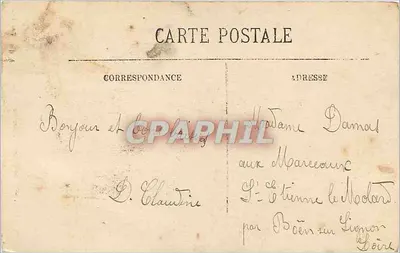 CARTE POSTALE
CORRESPONDANCE
ADRESSE
Bonjour et
D. Claudine
Madame Damas
aux Marceaux
St Etienne le Molard
par Boën sur Lignon
Loire
CPAPHIL